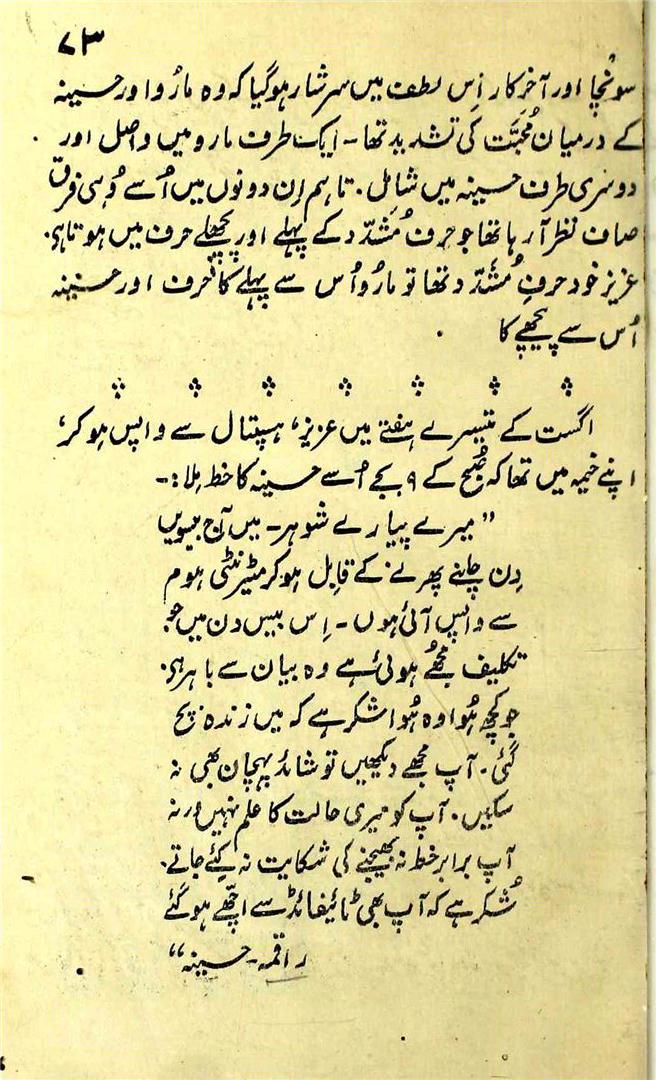 ۷۳
سونچا اور آخر کار اِس لطف میں سرشار ہوگیا کہ وہ مارُو اور حسینہ
کے درمیان مُحبَّت کی تشدید تھا۔ ایک طرف مارو میں واصل اور
دوسری طرف حسینہ میں شامل۔ تاہم اِن دونوں میں اُسے وُہی فرق
صاف نظر آرہا تھا جو حرف مُشَدّد کے پہلے اور پچھلے حرف میں ہوتا ہی۔
عزیز خود حرفِ مُشَدّد تھا تو مارُو اُس سے پہلے کا حرف اور حسینہ
اُس سے پیچھے کا
اگست کے تیسرے ہفتے میں عزیز، ہسپتال سے واپس ہوکر،
اپنے خیمہ میں تھا کہ صُبح کے ۹ بجے اُسے حسینہ کا خط مِلا:۔
”میرے پیارے شوہر۔ میں آج بیسویں
دِن چلنے پھرنے کے قابل ہوکر مٹیرنٹی ہوم
سے واپس آئی ہوں۔ اِس بیس دن میں جو
تکلیف مُجھے ہوئی ہے وہ بیان سے باہر ہی۔
جو کچھ ہُوا وہ ہُوا شکر ہے کہ میں زندہ بچ
گئی۔ آپ مجھے دیکھیں تو شائد پہچان بھی نہ
سکیں۔ آپ کو میری حالت کا علم نہیں ورنہ
آپ برابر خط نہ بھیجنے کی شکایت نہ کِئے جاتے۔
شُکر ہے کہ آپ بھی ٹائیفائڈ سے اچّھے ہوگئے
راقمہ۔ حسینہ“